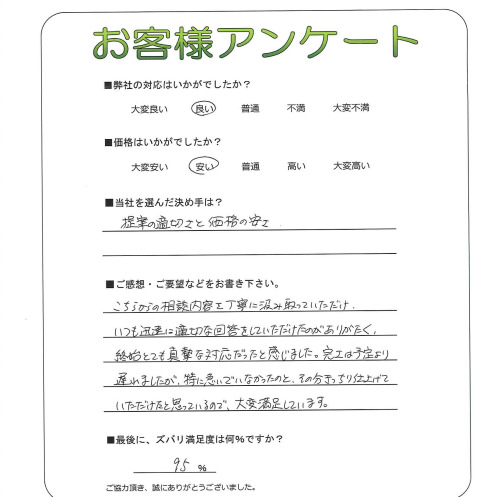 お客様アンケート
■弊社の対応はいかがでしたか？
大変良い　良い　普通　不満　大変不満
■価格はいかがでしたか？
大変安い　安い　普通　高い　大変高い
■当社を選んだ決め手は？
提案の適切さと価格の安さ
■ご感想・ご要望などをお書き下さい。
こちらからの相談内容を丁寧に汲み取っていただけ、
いつも迅速に適切な回答をしていただけたのがありがたく、
終始とても真摯な対応だったと感じました。完工は予定より
遅れましたが、特に急いでいなかったのと、その分きっちり仕上げて
いただけたと思っているので、大変満足しています。
■最後に、ズバリ満足度は何%ですか？
95 %
ご協力頂き、誠にありがとうございました。